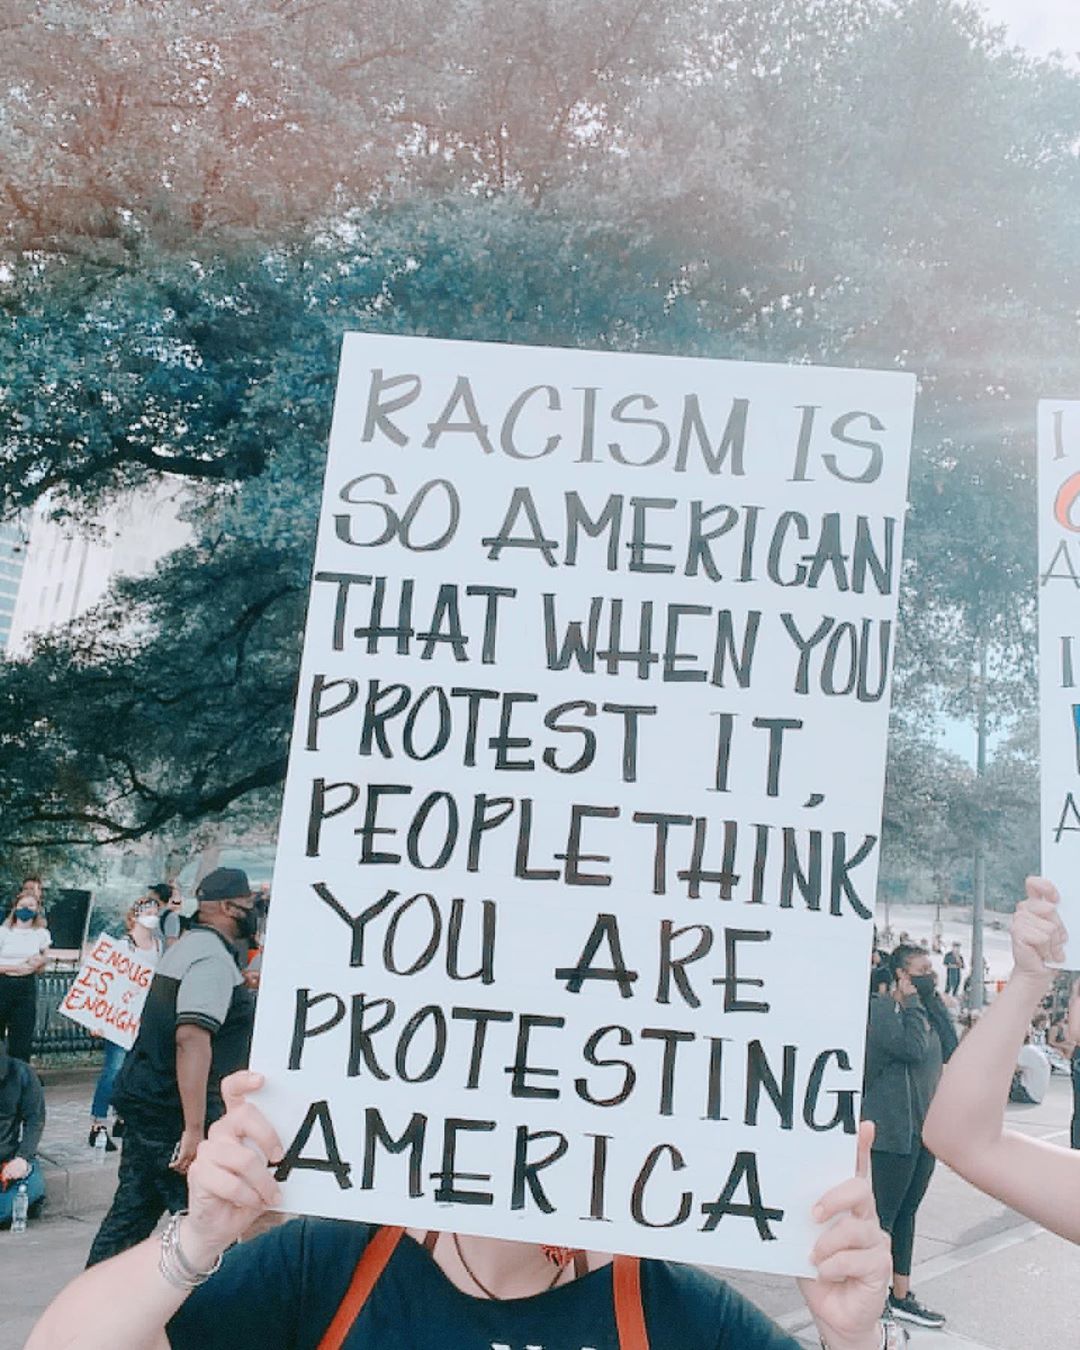 RACISM IS
SO AMERICAN
THAT WHEN YOU
PROTEST IT,
PEOPLE THINK
YOU ARE
PROTESTING
AMERICA
ENOUG
IS
ENOUGH
I
A
I
A